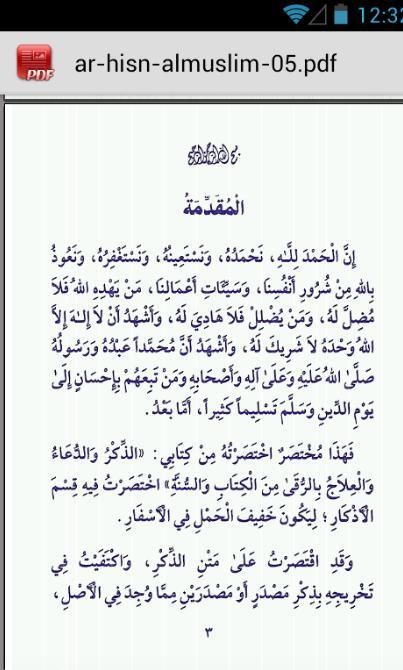 12:32
PDF
ar-hisn-almuslim-05.pdf
الْمُقَدِّمَةُ
إِنَّ الْحَمْدَ لِلَّـهِ، نَحْمَدُهُ، وَنَسْتَعِينُهُ، وَنَسْتَغْفِرُهُ، وَنَعُوذُ
بِاللهِ مِنْ شُرُورِ أَنْفُسِنَا، وَسَيِّئَاتِ أَعْمَالِنَا، مَنْ يَهْدِهِ اللهُ فَلاَ
مُضِلَّ لَهُ، وَمَنْ يُضْلِلْ فَلاَ هَادِيَ لَهُ، وَأَشْهَدُ أَنْ لاَ إِلـٰهَ إِلاَّ
اللهُ وَحْدَهُ لاَ شَرِيكَ لَهُ، وَأَشْهَدُ أَنَّ مُحَمَّداً عَبْدُهُ وَرَسُولُهُ
صَلَّىٰ اللهُ عَلَيْهِ وَعَلَىٰ آلِهِ وَأَصْحَابِهِ وَمَنْ تَبِعَهُمْ بِإِحْسَانٍ إِلَىٰ
يَوْمِ الدِّينِ وَسَلَّمَ تَسْلِيماً كَثِيراً، أَمَّا بَعْدُ.
فَهَذَا مُخْتَصَرٌ اخْتَصَرْتُهُ مِنْ كِتَابِي: «الذِّكْرُ وَالدُّعَاءُ
وَالْعِلاَجُ بِالرُّقَىٰ مِنَ الْكِتَابِ وَالسُّنَّةِ» اخْتَصَرْتُ فِيهِ قِسْمَ
الأَذْكَارِ؛ لِيَكُونَ خَفِيفَ الْحَمْلِ فِي الأَسْفَارِ.
وَقَدِ اقْتَصَرْتُ عَلَىٰ مَتْنِ الذِّكْرِ، وَاكْتَفَيْتُ فِي
تَخْرِيجِهِ بِذِكْرِ مَصْدَرٍ أَوْ مَصْدَرَيْنِ مِمَّا وُجِدَ فِي الأَصْلِ،
٣